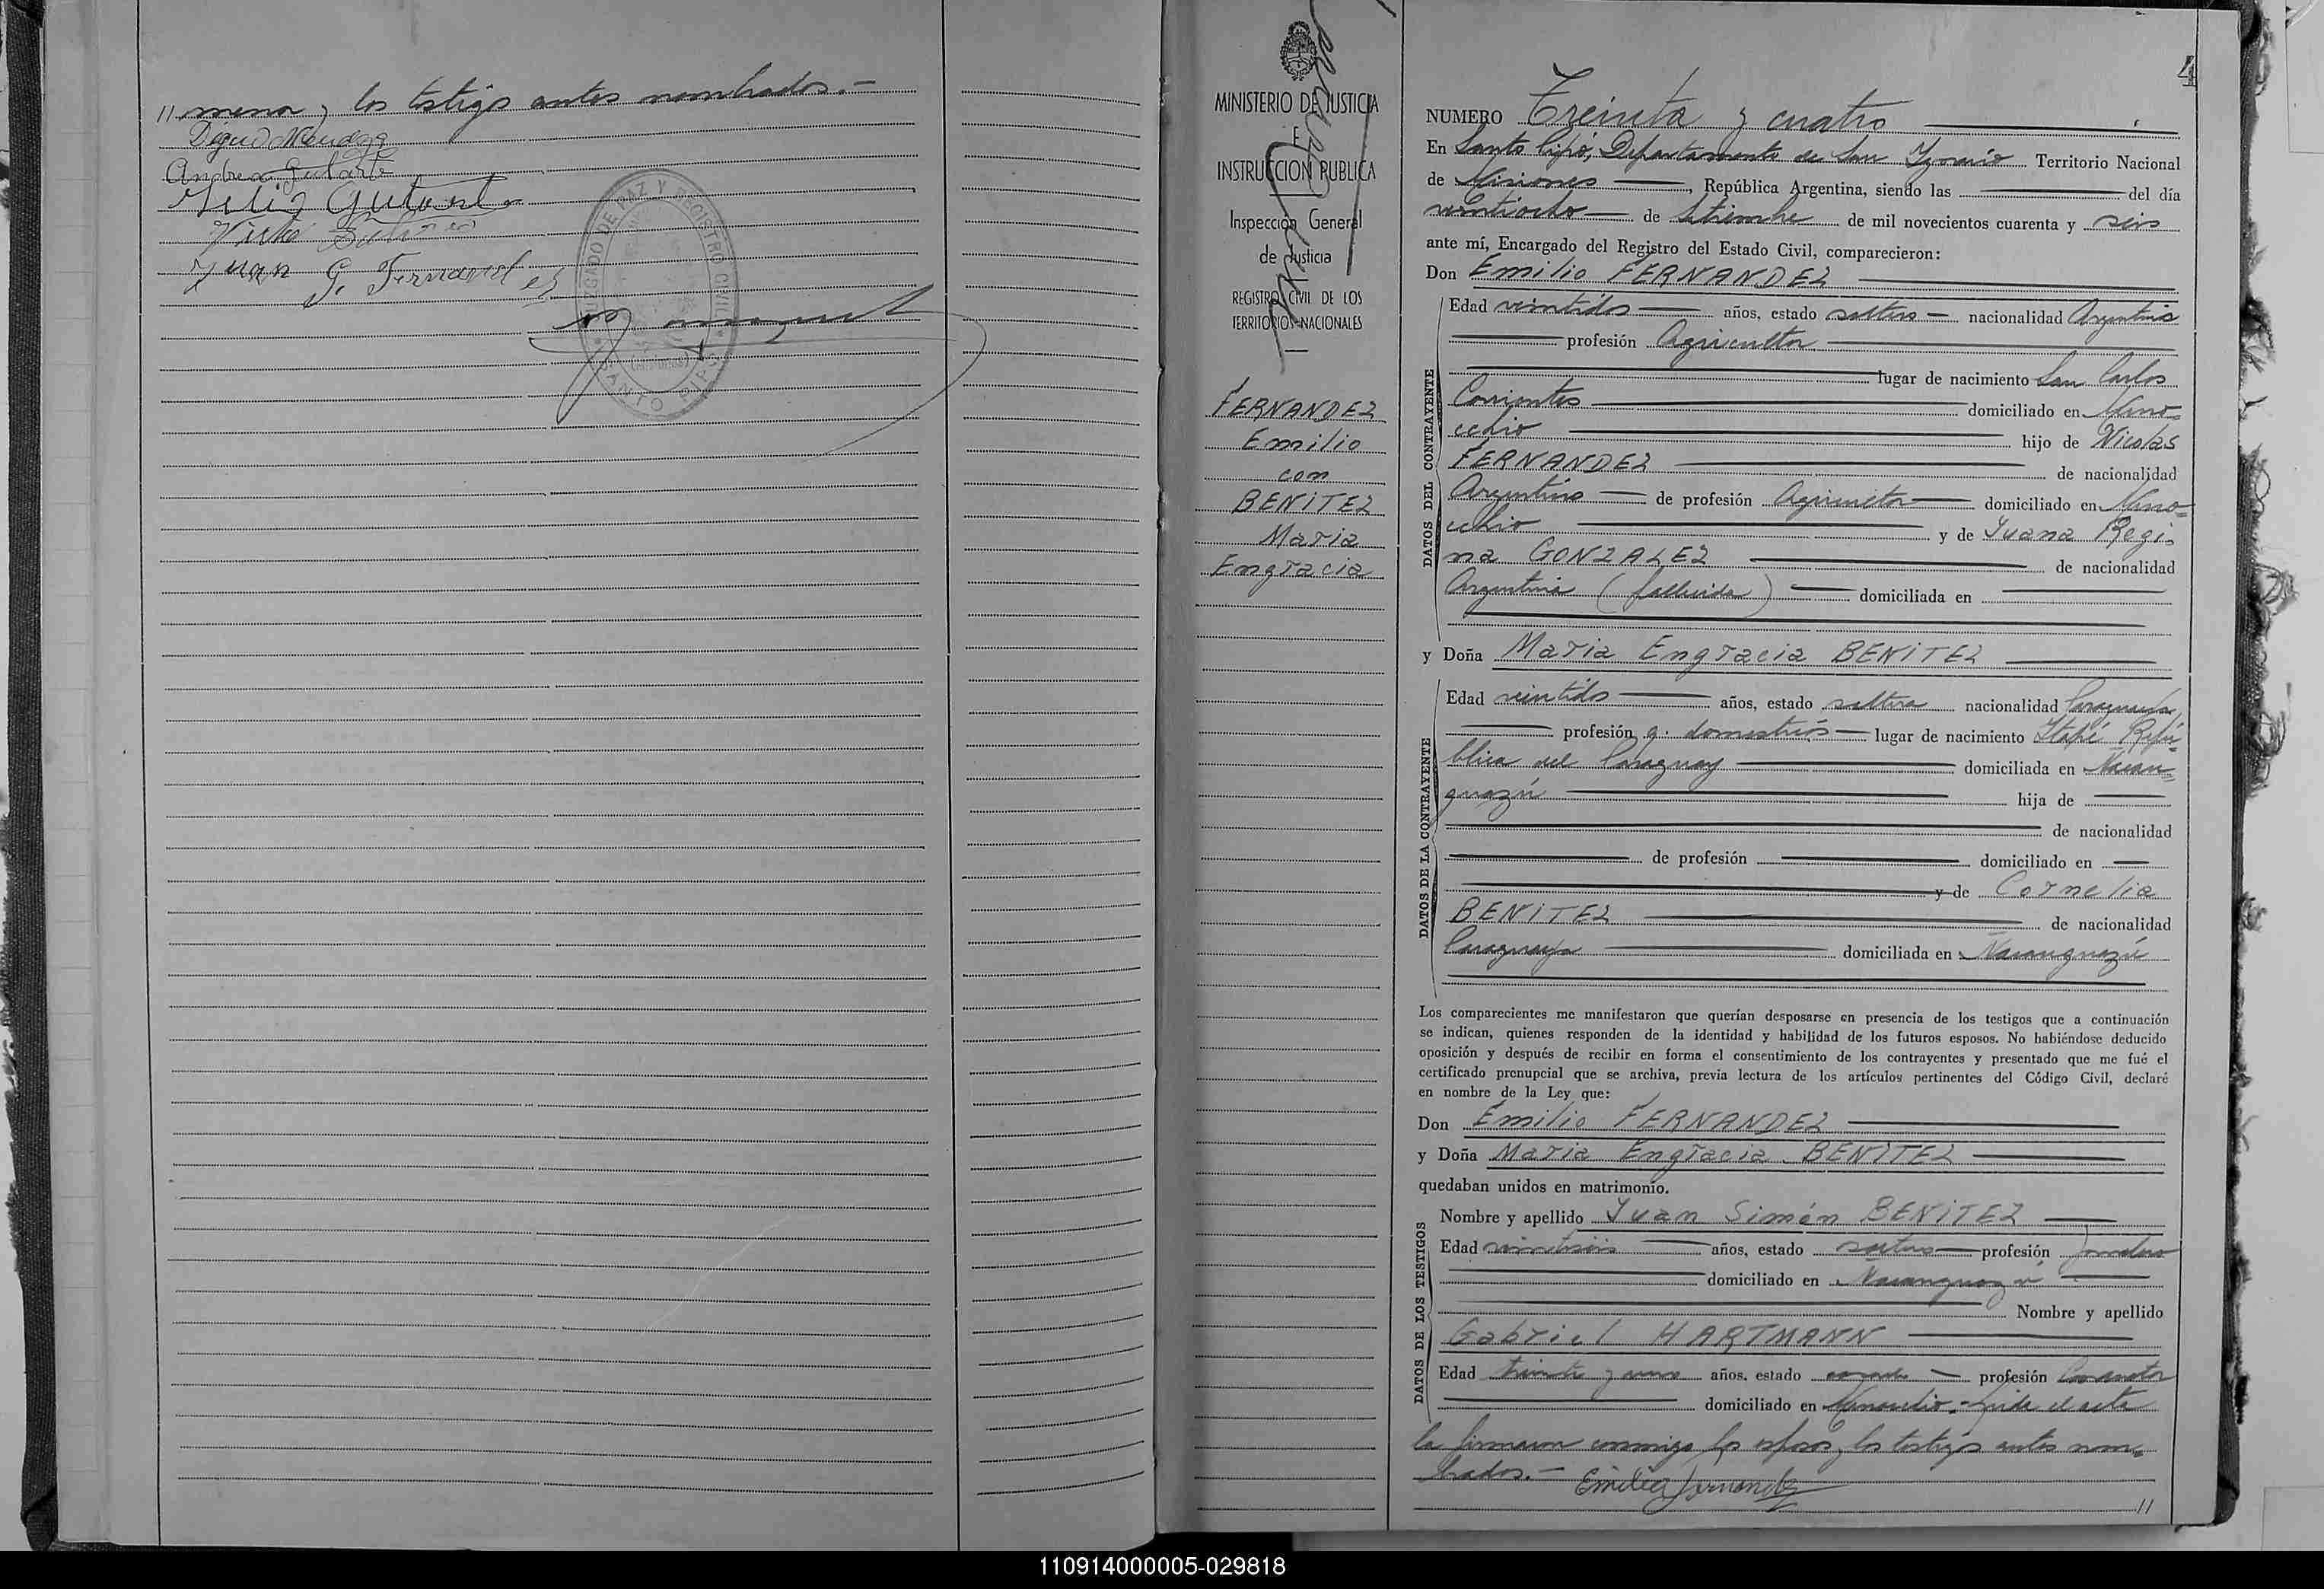 // mena y los testigos antes nombrados.—
Andres Gularte
Felis Gularte
Juan G. Fernandez
JUZGADO DE PAZ Y REGISTRO CIVIL
SANTO PIPO
(MISIONES)
MINISTERIO DE JUSTICIA
E
INSTRUCCION PUBLICA
Inspección General
de Justicia
REGISTRO CIVIL DE LOS
TERRITORIOS NACIONALES
FERNANDEZ
Emilio
con
BENITEZ
Maria
Engracia
4
NUMERO Treinta y cuatro
En Santo Pipó, Departamento de San Ygnacio Territorio Nacional
de Misiones, República Argentina, siendo las del día
veintiocho de Setiembre de mil novecientos cuarenta y seis
ante mí, Encargado del Registro del Estado Civil, comparecieron:
Don Emilio FERNANDEZ
DATOS DEL CONTRAYENTE
Edad veintidos años, estado soltero nacionalidad Argentina
profesión Agricultor
lugar de nacimiento San Carlos
Corrientes domiciliado en
hijo de Nicolas
FERNANDEZ de nacionalidad
Argentino de profesión Agricultor domiciliado en
y de Juana Regi-
na GONZALEZ de nacionalidad
Argentina (fallecida) domiciliada en
y Doña Maria Engracia BENITEZ
DATOS DE LA CONTRAYENTE
Edad veintidos años, estado soltera nacionalidad Paraguaya
profesión q. domesticos lugar de nacimiento Itapé Repú-
blica del Paraguay domiciliada en Ñacan-
guazú hija de
de nacionalidad
de profesión domiciliado en
y de Cornelia
BENITEZ de nacionalidad
Paraguaya domiciliada en Ñacanguazú
Los comparecientes me manifestaron que querían desposarse en presencia de los testigos que a continuación
se indican, quienes responden de la identidad y habilidad de los futuros esposos. No habiéndose deducido
oposición y después de recibir en forma el consentimiento de los contrayentes y presentado que me fué el
certificado prenupcial que se archiva, previa lectura de los artículos pertinentes del Código Civil, declaré
en nombre de la Ley que:
Don Emilio FERNANDEZ
y Doña Maria Engracia BENITEZ
quedaban unidos en matrimonio.
DATOS DE LOS TESTIGOS
Nombre y apellido Juan Simón BENITEZ
Edad veintiseis años, estado soltero profesión Jornalero
domiciliado en Ñacanguazú
Nombre y apellido
Gabriel HARTMANN
Edad treinta y años, estado casado profesión
domiciliado en Leida el acta
la firmaron conmigo los esposos y los testigos antes nom-
brados.— Emilio Fernandez
//
110914000005-029818